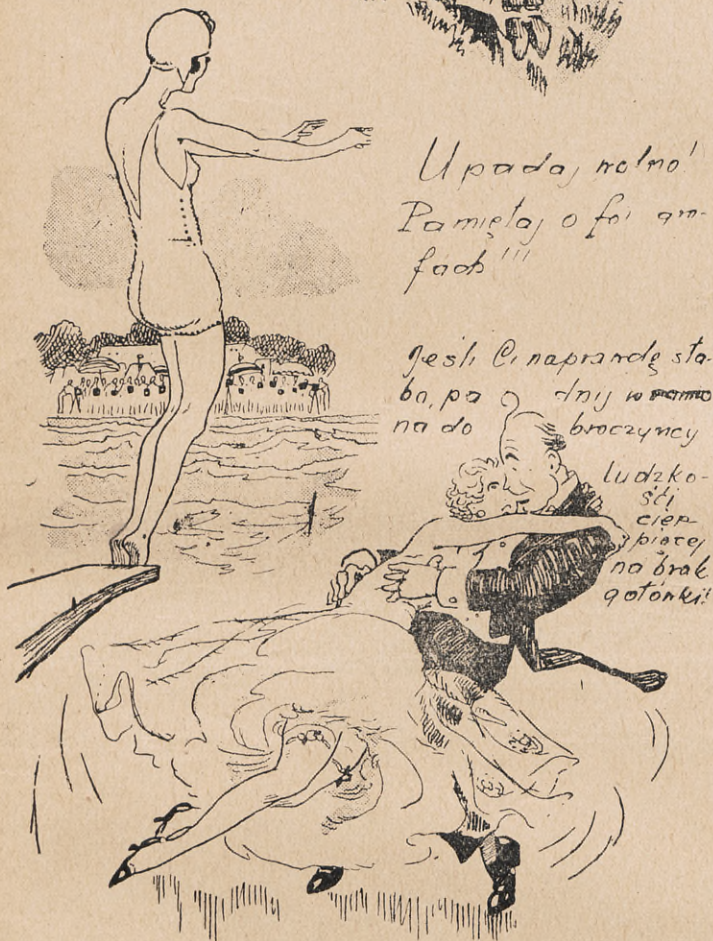 Upadaj wolno!
Pamiętaj o fotogra-
fach!!!
Jeśli Ci naprawdę sła-
bo, padnij w ramio
na dobroczyńcy
ludzko-
ści
cier-
piącej
na brak
gotówki!